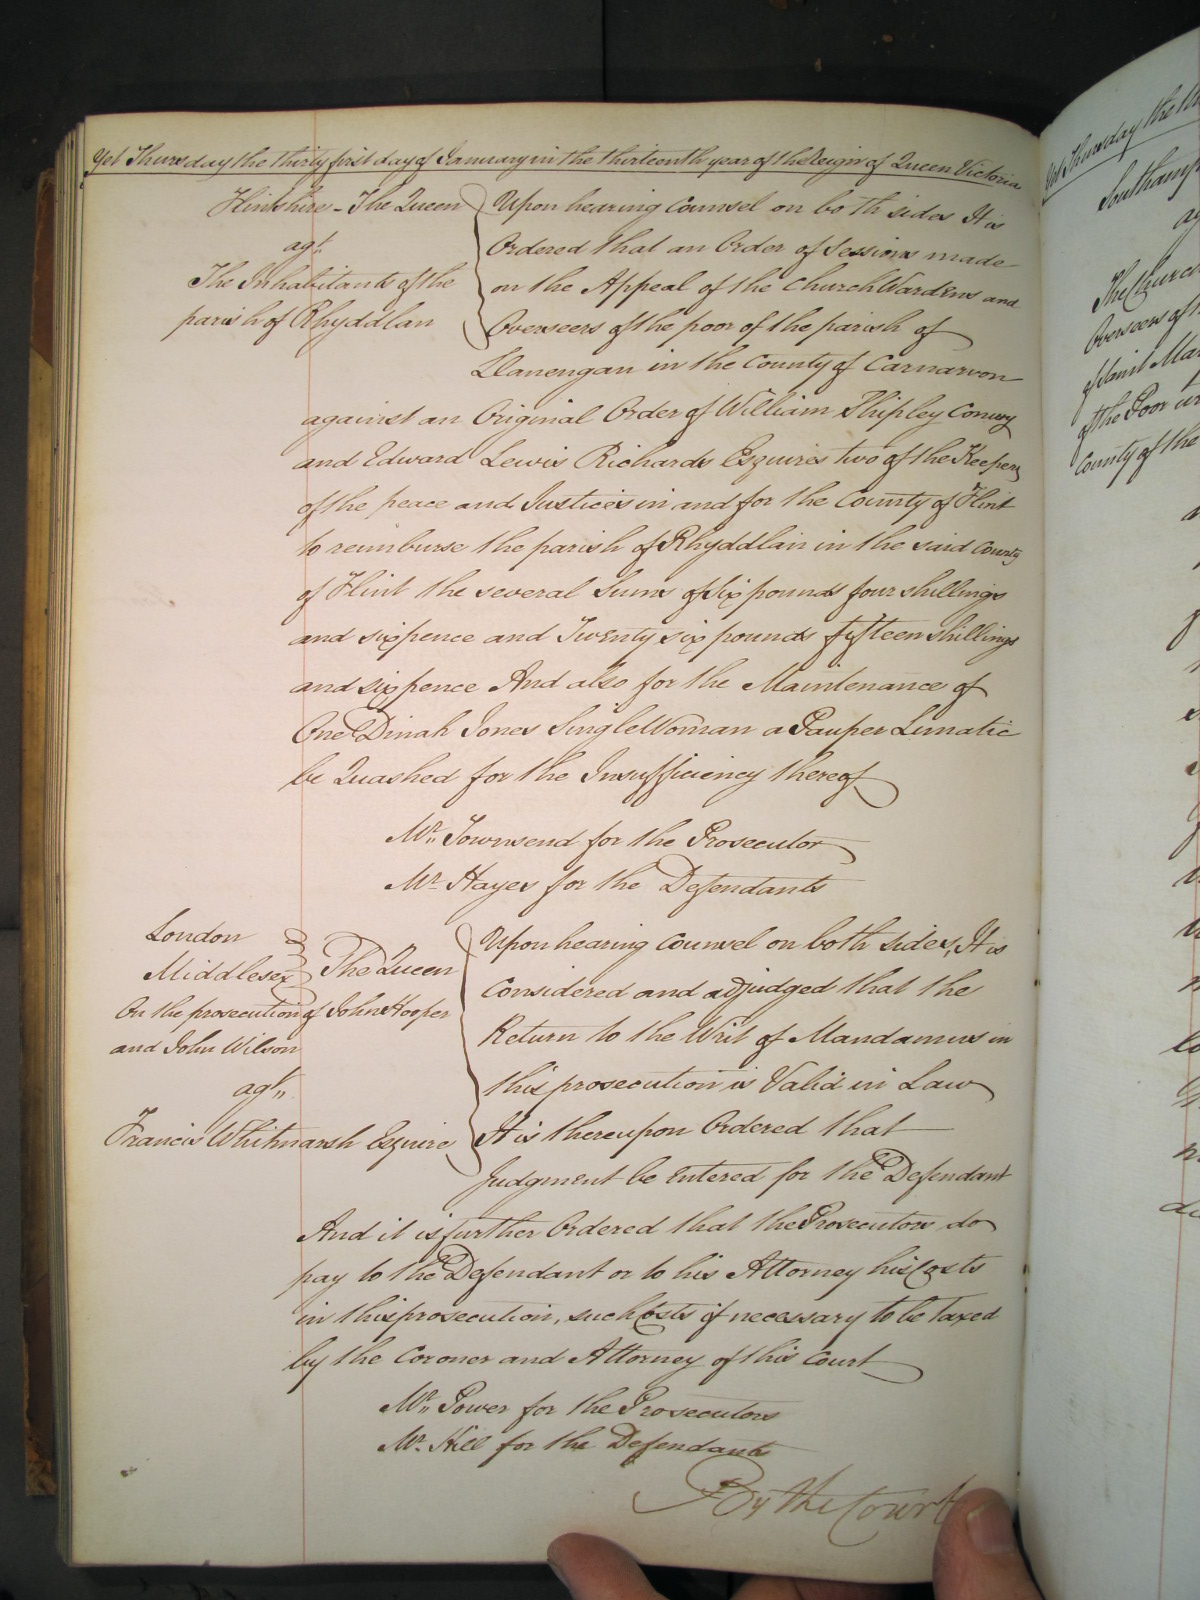 Yet Thursday the thirty first day of January in the thirteenth year of the Reign of Queen Victoria
Flintshire - The Queen
agt.
The Inhabitants of the
parish of Rhyddlan
Upon hearing Counsel on both sides It is
Ordered that an Order of Sessions made
on the Appeal of the Church Wardens and
Overseers of the poor of the parish of
Llanengan in the County of Carnarvon
against an Original Order of William Shipley Conwy
and Edward Lewis Richards Esquires two of the Keepers
of the peace and Justices in and for the County of Flint
to reimburse the parish of Rhyddlan in the said County
of Flint the several Sums of Six pounds four shillings
and sixpence and Twenty six pounds fifteen shillings
and sixpence And also for the Maintenance of
One Dinah Jones Single Woman a Pauper Lunatic
be Quashed for the Insufficiency thereof
Mr. Townsend for the Prosecutor
Mr. Hayes for the Defendants
London
Middlesex The Queen
On the prosecution of John Hooper
and John Wilson
agt.
Francis Whitmarsh Esquire
Upon hearing Counsel on both sides, It is
Considered and adjudged that the
Return to the Writ of Mandamus in
this prosecution is Valid in Law
It is thereupon Ordered that
Judgment be entered for the Defendant
And it is further Ordered that the Prosecutors do
pay to the Defendant or to his Attorney his Costs
in this prosecution, such Costs if necessary to be taxed
by the Coroner and Attorney of this Court
Mr. Power for the Prosecutors
Mr. Hill for the Defendants
By the Court
Yet Thursday the
The Church
Overseers of
of the Poor
County of the